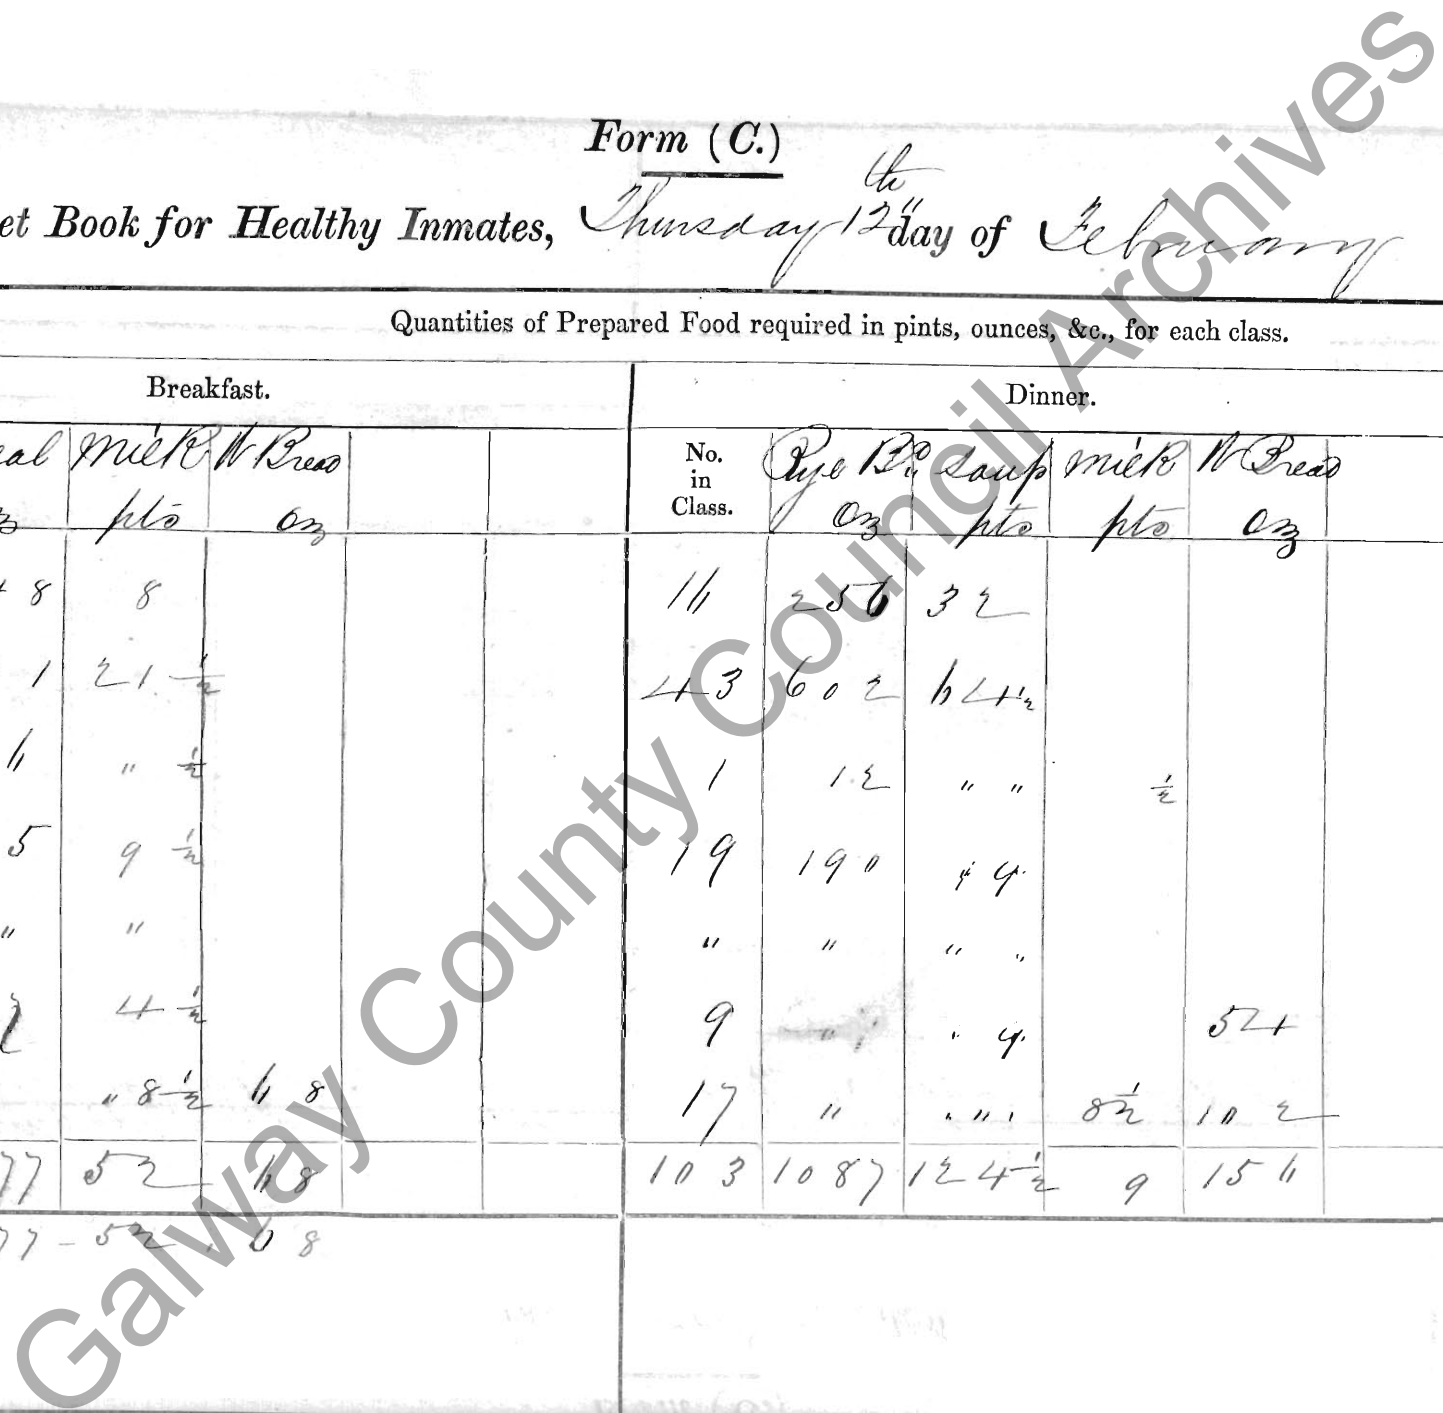 Form (C.)
et Book for Healthy Inmates, Thursday 12th day of February
Quantities of Prepared Food required in pints, ounces, &c., for each class.
Breakfast. Dinner.
eal Milk W Bread No. in Class. Rye Bd. Soup Milk W Bread
oz pts oz oz pts pts oz
48 8 16 256 32
1 21 ½ 43 602 64 ½
6 " ½ 1 12 " " ½
5 9 ½ 19 190
" " " " " "
4 ½ 9 " 54
" 8 ½ 68 17 " " " " 8 ½ 102
77 52 68 103 1087 124 ½ 9 156
77 - 52 . 68
Galway County Council Archives